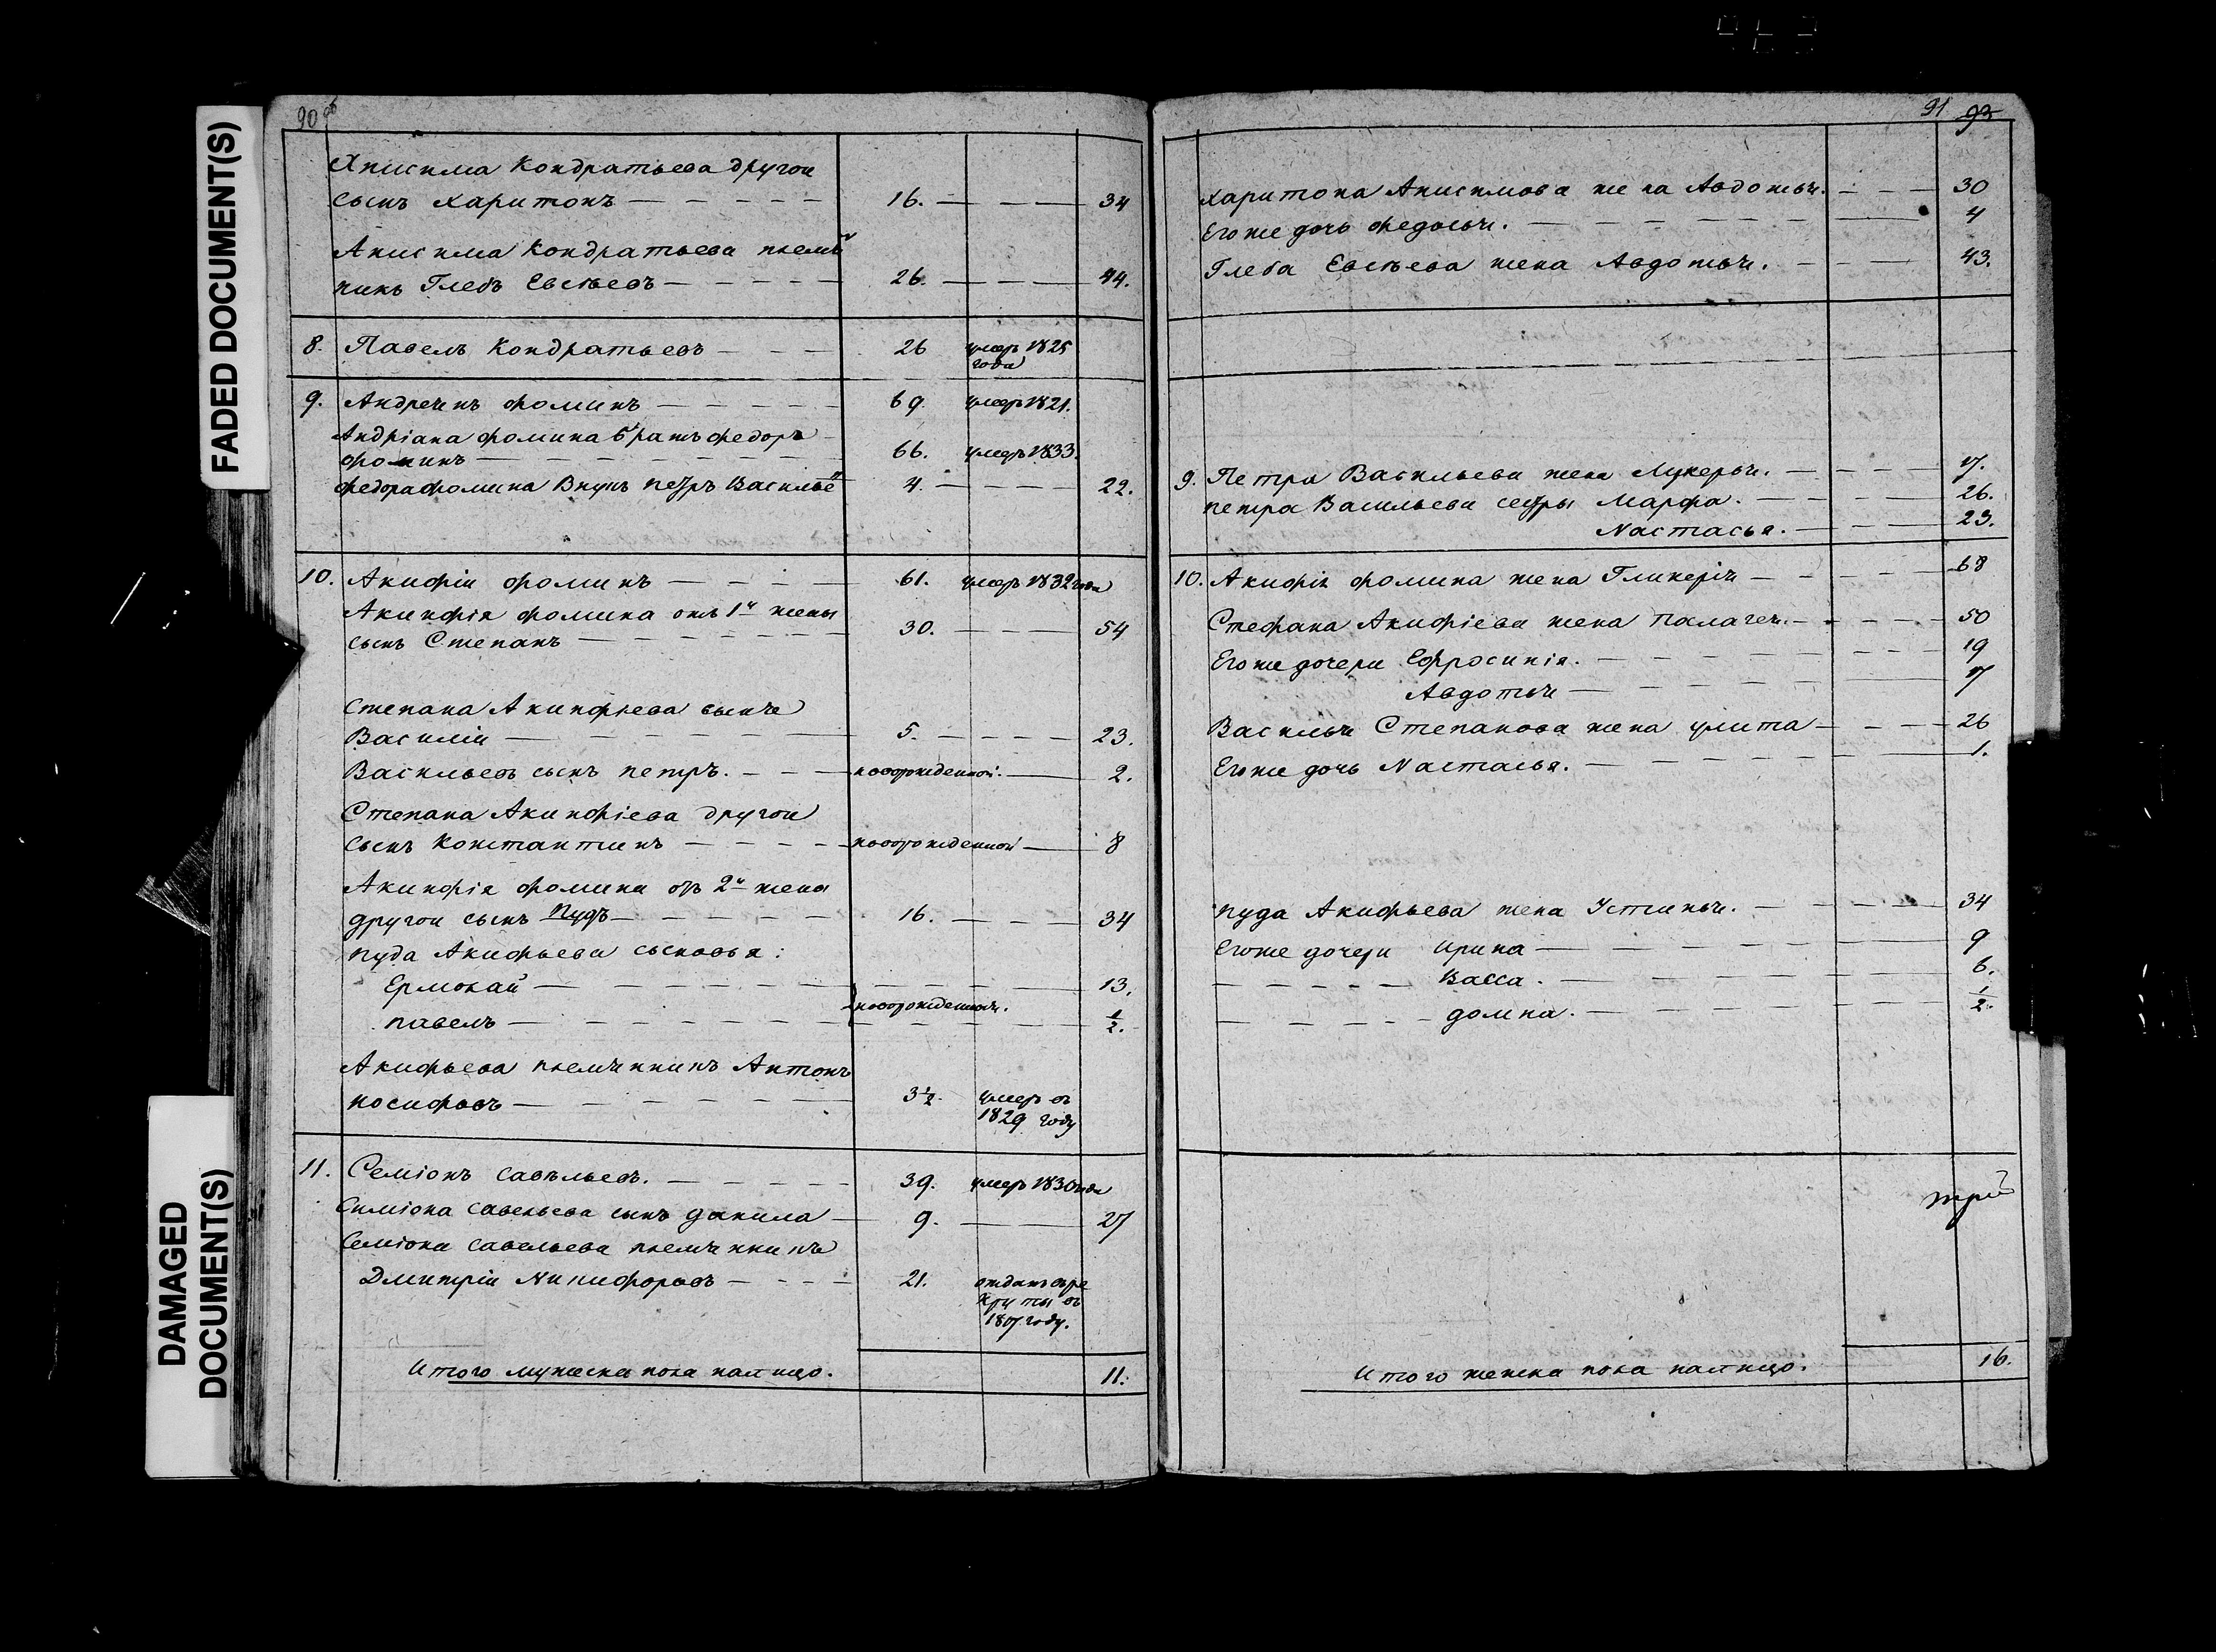 FADED DOCUMENT(S)
DAMAGED DOCUMENT(S)
90 об
Анисима Кондратьева другои
сынъ Харитонъ 16. 34
Анисима Кондратьева племя
никъ Глебъ Евсѣевъ 26. 44.
8. Павелъ Кондратьевъ 26 умеръ 1825
года
9. Андреянъ Фоминъ 69. умеръ 1821.
Андріана Фомина братъ Федоръ
Фоминъ 66. умеръ 1833.
Федора Фомина Внукъ петръ Василье 4. 22.
10. Акифіи Фоминъ 61. умеръ 1832 года
Акинфія Фомина отъ 1й жены
сынъ Степанъ 30. 54
Степана Акинфіева сынъ
Василіи 5. 23.
Васильевъ сынъ петръ. новорожденной. 2.
Степана Акинфіева другои
сынъ Константинъ новорожденной 8
Акинфія Фомина отъ 2й жены
другои сынъ Пудъ 16. 34
пуда Акифьева сыновья:
Ермолай 13.
новорожденныя.
павелъ 1/2.
Акифьева племянникъ Антонъ
иосифовъ 3 1/2. умеръ въ
1829 году
11. Семіонъ Савѣльевъ. 39. умеръ 1830 года
Симіона Савельева сынъ данила 9. 27
Семіона Савельева племянникъ
Дмитріи Никифоровъ 21. отданъ въ ре
круты въ
году.
Итого мужеска пола налицо. 11.
91 93
Харитона Анисимова жена Авдотья. 30
Егоже дочь Федосья. 4
Глеба Евсѣева жена Авдотья. 43.
9. Петра Васильева жена Лукерья. 17.
петра Васильева сестры Марфа. 26.
Настасья. 23.
10. Акифія Фомина жена Гликерія 68
Стефана Акифіева жена палагея. 50
Егоже дочери Ефросинія. 19
Авдотья 17
Василья Степанова жена улита 26
Егоже дочь Настасья. 1.
пуда Акифьева жена Устинья. 34
Егоже дочери Ирина 9
Васса. 6.
домна. 1/2.
Итого женска пола налицо. 16.